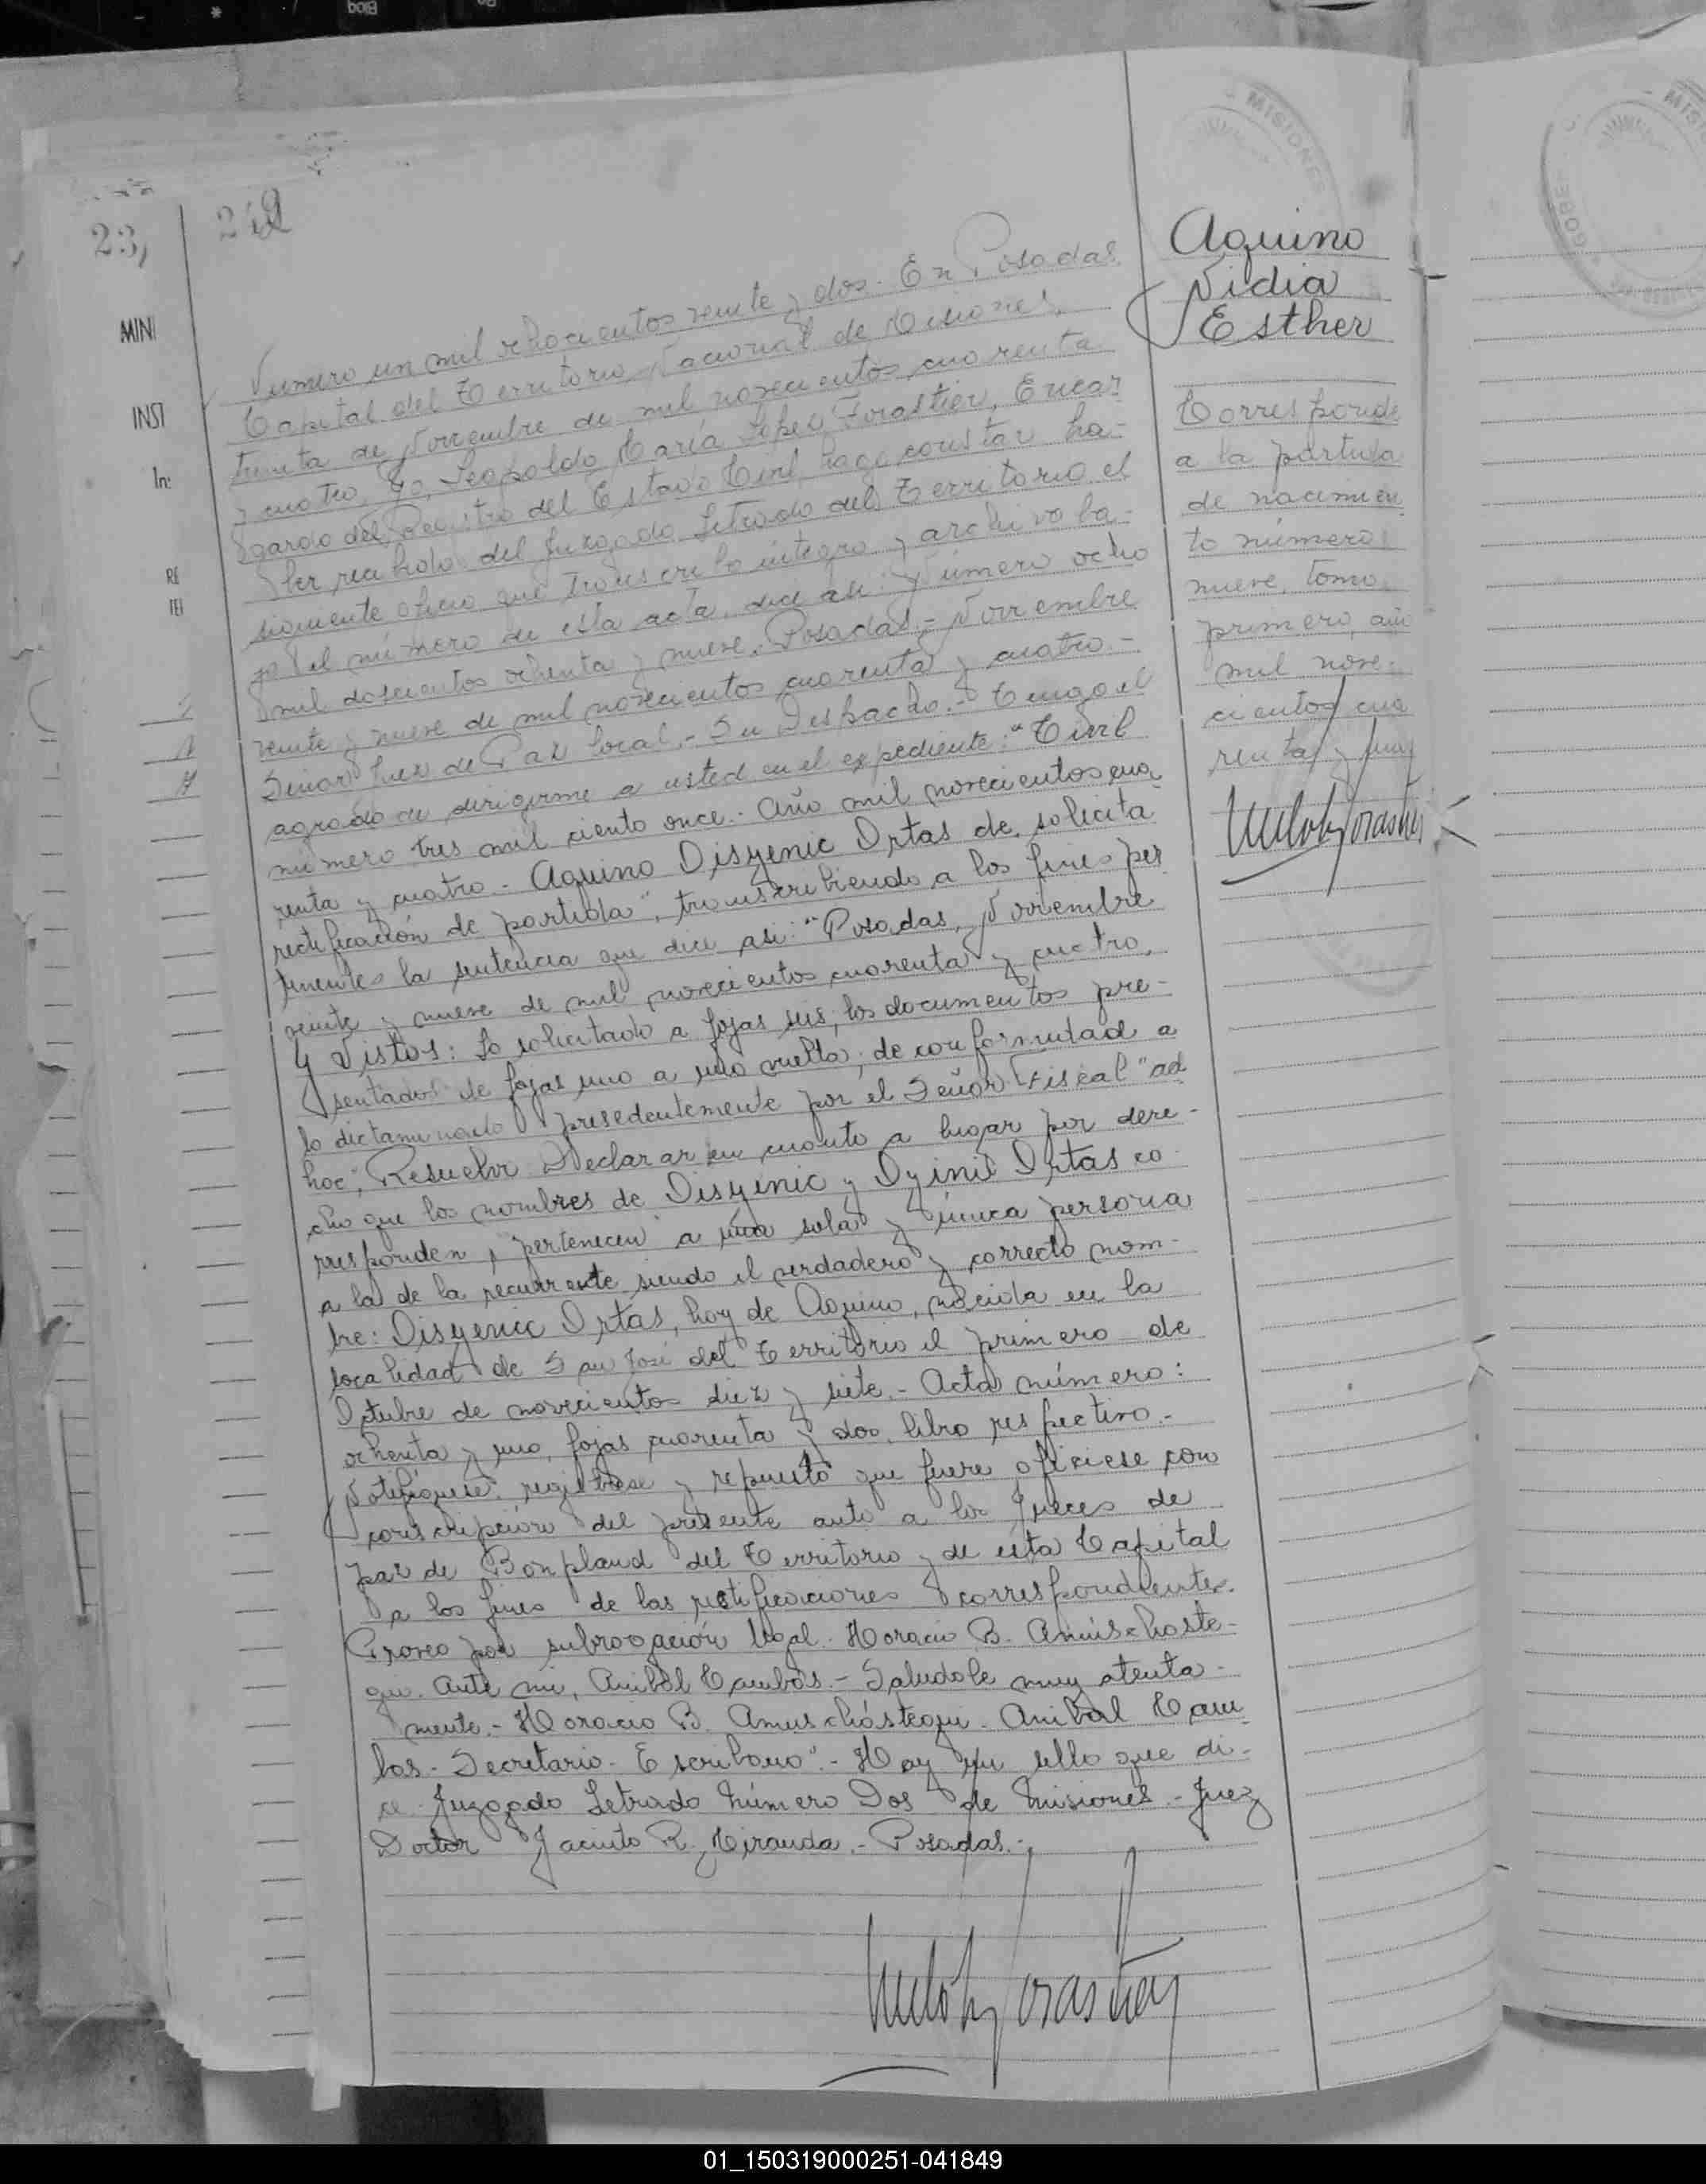 23,
242
MINI
INST
In:
Número un mil ochocientos veinte y dos. En Posadas
Capital del Territorio Nacional de Misiones,
treinta de Noviembre de mil novecientos cuarenta
y cuatro, Yo, Leopoldo María López Forastier, Encar
gardo del Registro del Estado Civil, hago constar ha-
ber recibido del Juzgado Letrado del Territorio el
siguiente oficio que transcribo íntegro y archivo ba-
jo el número de esta acta, dice así: Número ocho
mil doscientos ochenta y nueve. Posadas,- Noviembre
veinte y nueve de mil novecientos cuarenta y cuatro.-
Señor Juez de Paz local.- Su Despacho.- Tengo el
agrado de dirigirme a usted en el expediente: "Civil
número tres mil ciento once.- Año mil novecientos cua
renta y cuatro.- Aquino Disyenic Ortas de, solicita
rectificación de partida", transcribiendo a los fines per
tinentes la sentencia que dice así: "Posadas, Noviembre
veinte y nueve de mil novecientos cuarenta y cuatro,
Y Vistos: Lo solicitado a fojas seis; los documentos pre-
sentados de fojas uno a uno vuelta; de conformidad a
lo dictaminado presedentemente por el Señor Fiscal "ad
hoc"; Resuelvo: Declarar en cuanto a lugar por dere-
cho que los nombres de Disyinic y Dyinis Ortas co-
rresponden, pertenecen a una sola y única persona
a la de la recurrente siendo el verdadero y correcto nom-
bre: Disyenic Ortas, hoy de Aquino, nacida en la
localidad de San José del Territorio el primero de
Octubre de novecientos diez y siete.- Acta número:
ochenta y uno, fojas cuarenta y dos, libro respectivo.-
Notifíquese, regístrese y repuesto que fuere ofíciese con
conscripción del presente auto a los Jueces de
paz de Bonpland del Territorio y de esta Capital
a los fines de las rectificaciones correspondientes.
Proveo por subrogación legal. Horacio B. Amuschaste-
gui. Ante mi, Anibal Cambas.- Saludole muy atenta-
mente.- Horacio B. Amuschástegui. Anibal Cam
bas.- Secretario.- Escribano".- Hay un sello que di-
ce: Juzgado Letrado Número Dos de Misiones.- Juez
Doctor Jacinto R. Miranda.- Posadas.-
Aquino
Nidia
Esther
Corresponde
a la partida
de nacimien
to número
nueve, tomo
primero, año
mil nove-
cientos cua
renta y uno
MISIONES
01_150319000251-041849